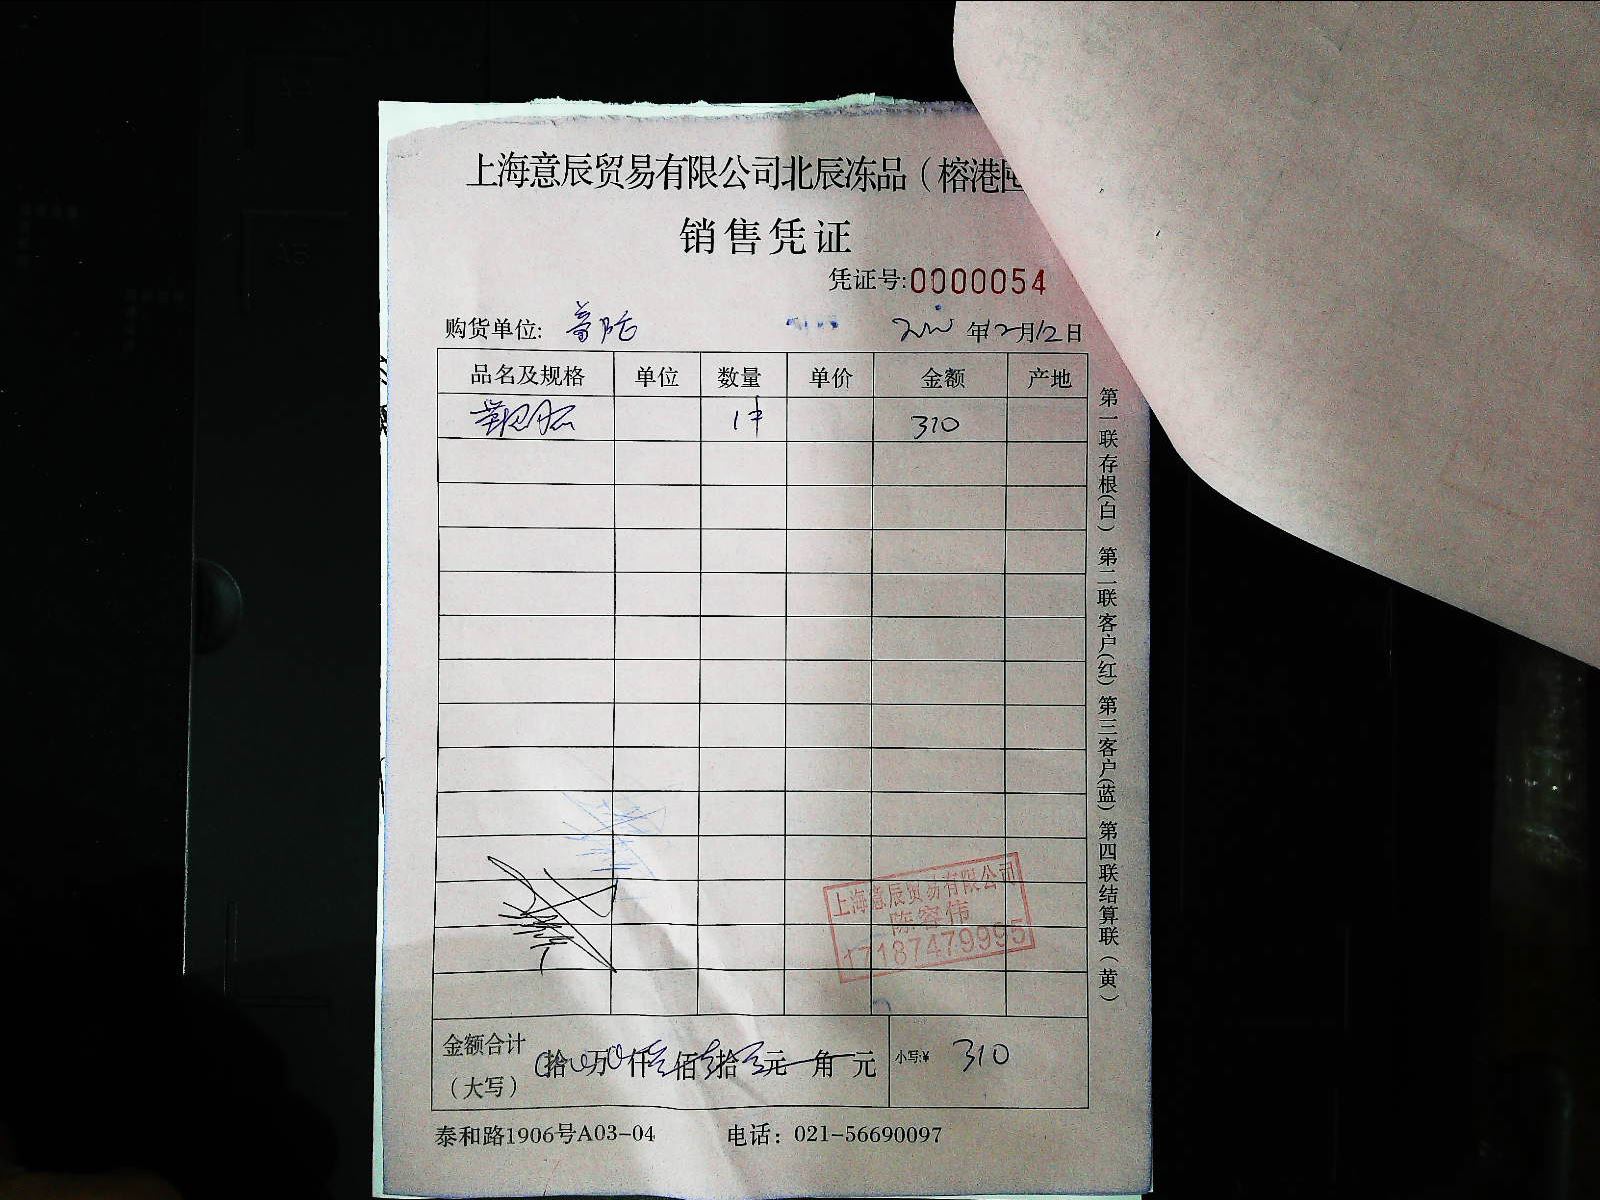 上海意辰贸易有限公司北辰冻品（榕港
销售凭证
凭证号:0000054
购货单位: 普陀 年12月12日
品名及规格 单位 数量 单价 金额 产地
1件 310
第一联存根(白) 第二联客户(红) 第三客户(蓝) 第四联结算联(黄)
上海意辰贸易有限公司
陈容伟
17187479995
金额合计
（大写） 拾 万 仟 佰 拾 元 角 元 小写:¥ 310
泰和路1906号A03-04 电话：021-56690097